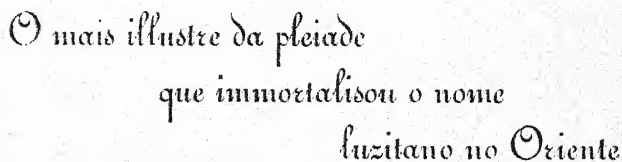 O mais illustre da pleiade
que immortalisou o nome
luzitano no Oriente